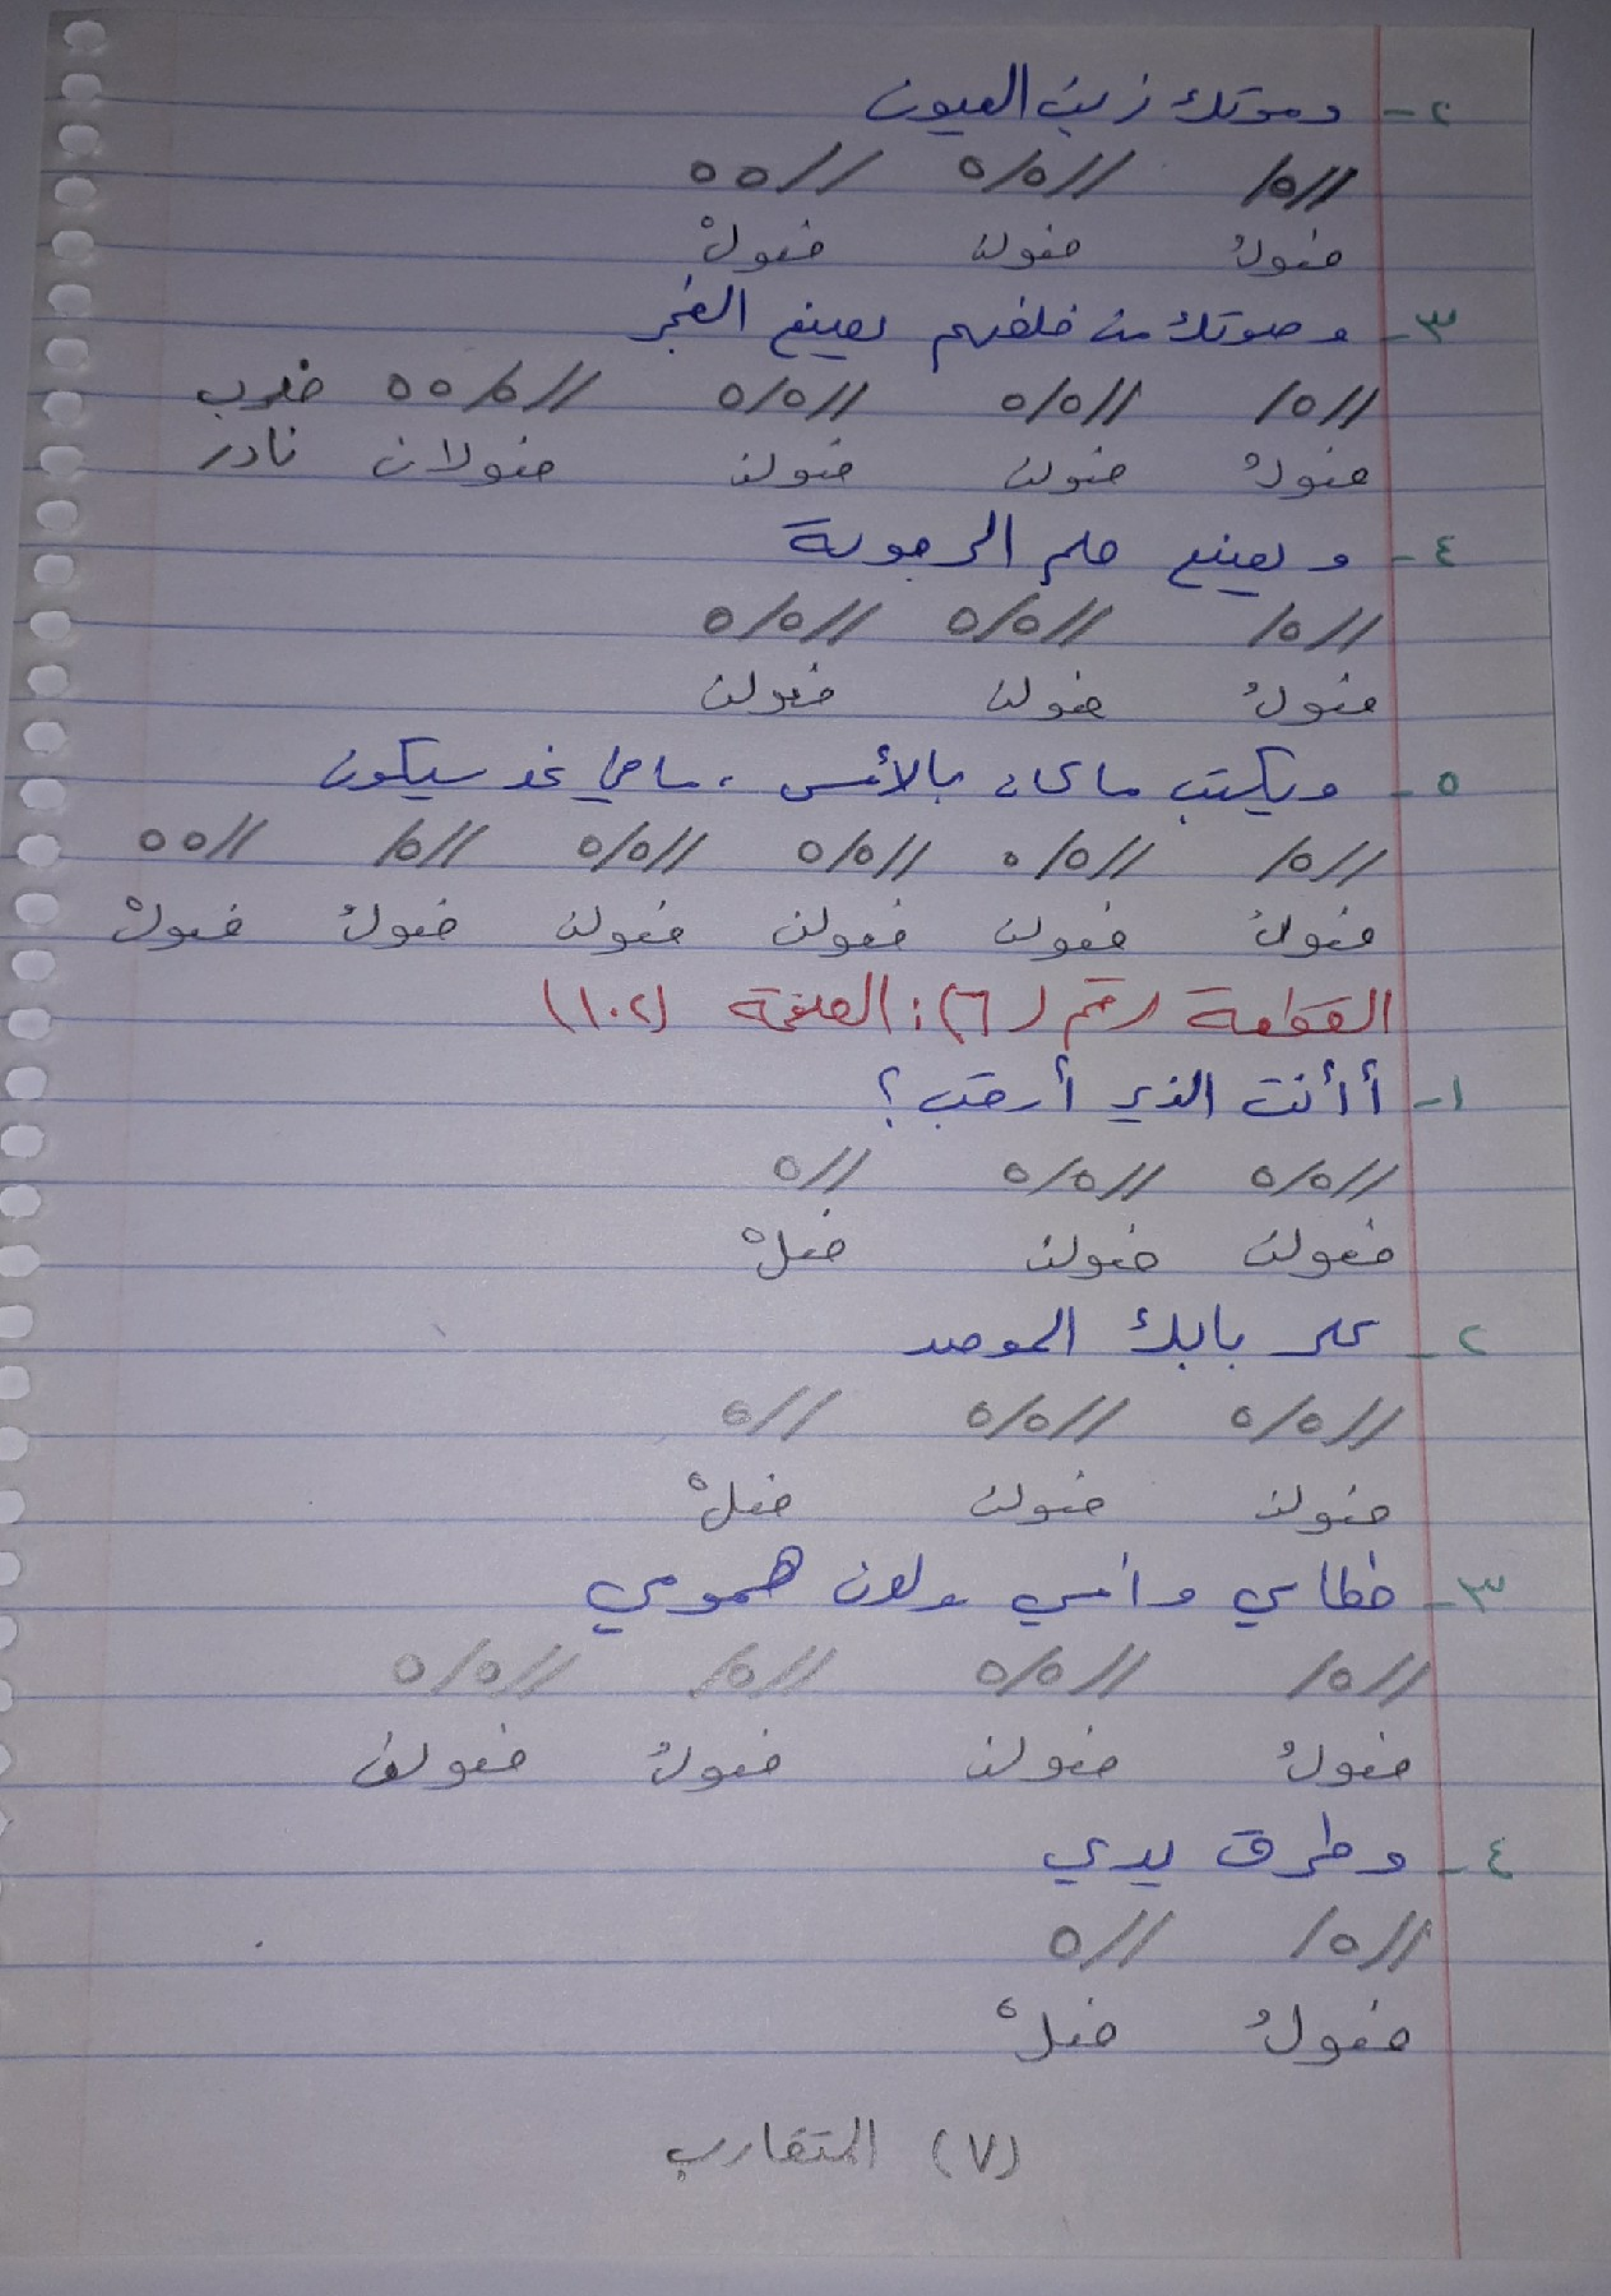 ٢- وموتك زيت العيون
//٥/ //٥/٥ //٥٥
فعولُ فعولن فعولْ
٣- وصوتك من خلفهم يصنع الفجر
//٥/ //٥/٥ //٥/٥ //٥/٥٥ ضرب
فعولُ فعولن فعولن فعولان نادر
٤- ويصنع حلم الرجولة
//٥/ //٥/٥ //٥/٥
فعولُ فعولن فعولن
٥- ويكتب ما كان بالأمس، ما في غد سيكون
//٥/ //٥/٥ //٥/٥ //٥/٥ //٥/ //٥٥
فعولُ فعولن فعولن فعولن فعولُ فعولْ
القطعة رقم (٦): الصفحة (١٠٢)
١- أأنت الذي أرقب؟
//٥/٥ //٥/٥ //٥
فعولن فعولن فعلْ
٢- على بابك الموصد
//٥/٥ //٥/٥ //٥
فعولن فعولن فعلْ
٣- خطاي وأمسي ولون همومي
//٥/ //٥/٥ //٥/ //٥/٥
فعولُ فعولن فعولُ فعولن
٤- وطرق يدي
//٥/ //٥
فعولُ فعلْ
(٧) المتقارب